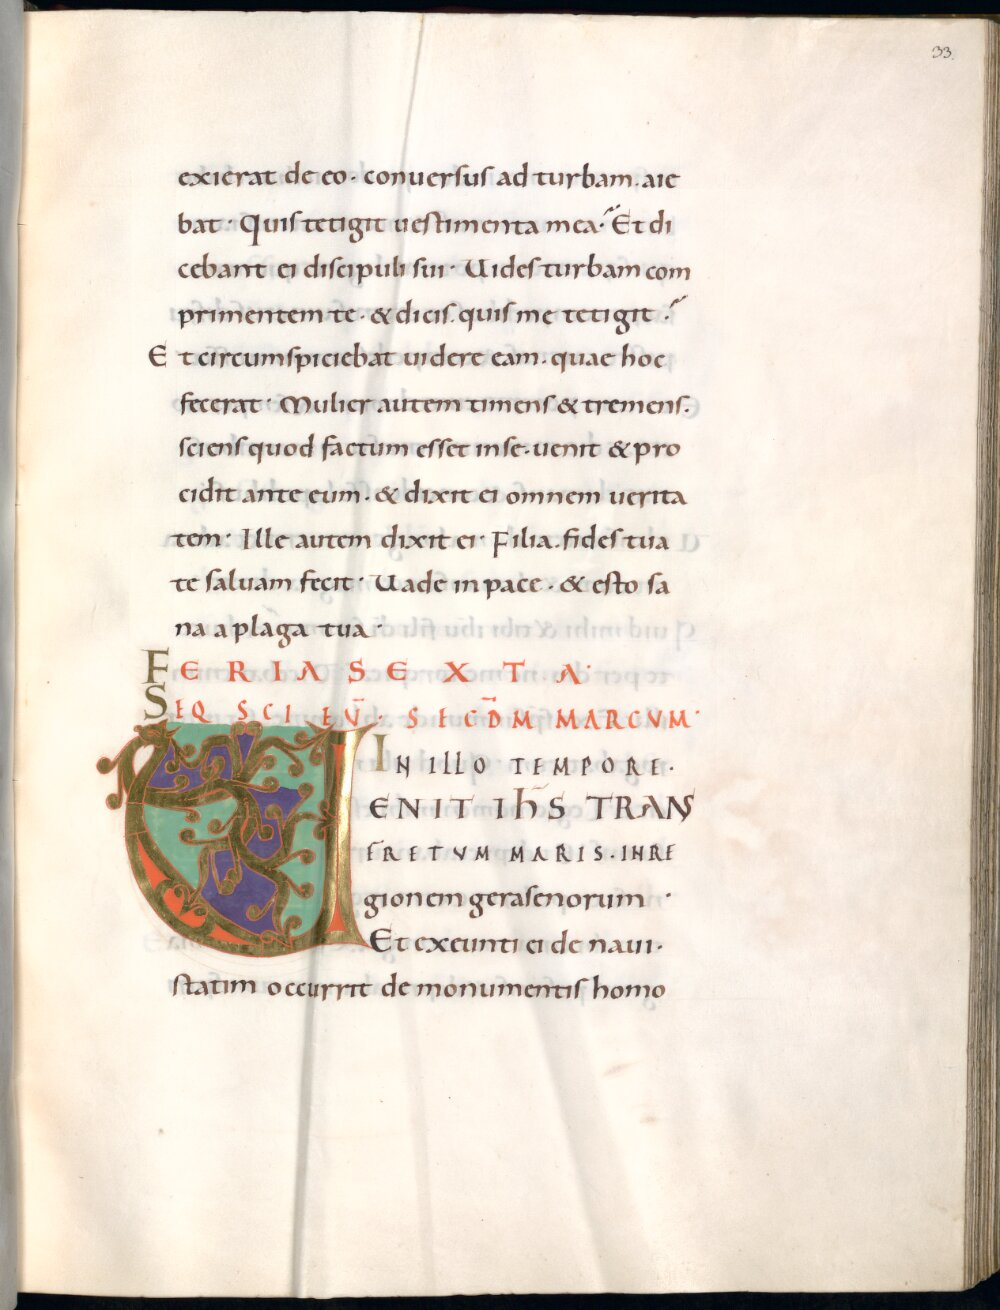 33.
exierat de eo· conuersus ad turbam· aie
bat· Quis tetigit uestimenta mea·? Et di
cebant ei discipuli sui· Uides turbam com
primentem te· & dicis· quis me tetigit·?
Et circumspiciebat uidere eam· quae hoc
fecerat· Mulier autem timens & tremens·
sciens quod factum esset in se· uenit & pro
cidit ante eum· & dixit ei omnem uerita
tem· Ille autem dixit ei· Filia· fides tua
te saluam fecit· Uade in pace· & esto sa
na a plaga tua·
FERIA SEXTA·
SEQ SCI EṼ· SECD̄M MARCUM·
IN ILLO TEMPORE·
UENIT IH̄S TRANS
FRETUM MARIS· IN RE
gionem gerasenorum·
Et exeunti ei de naui·
statim occurrit de monumentis homo